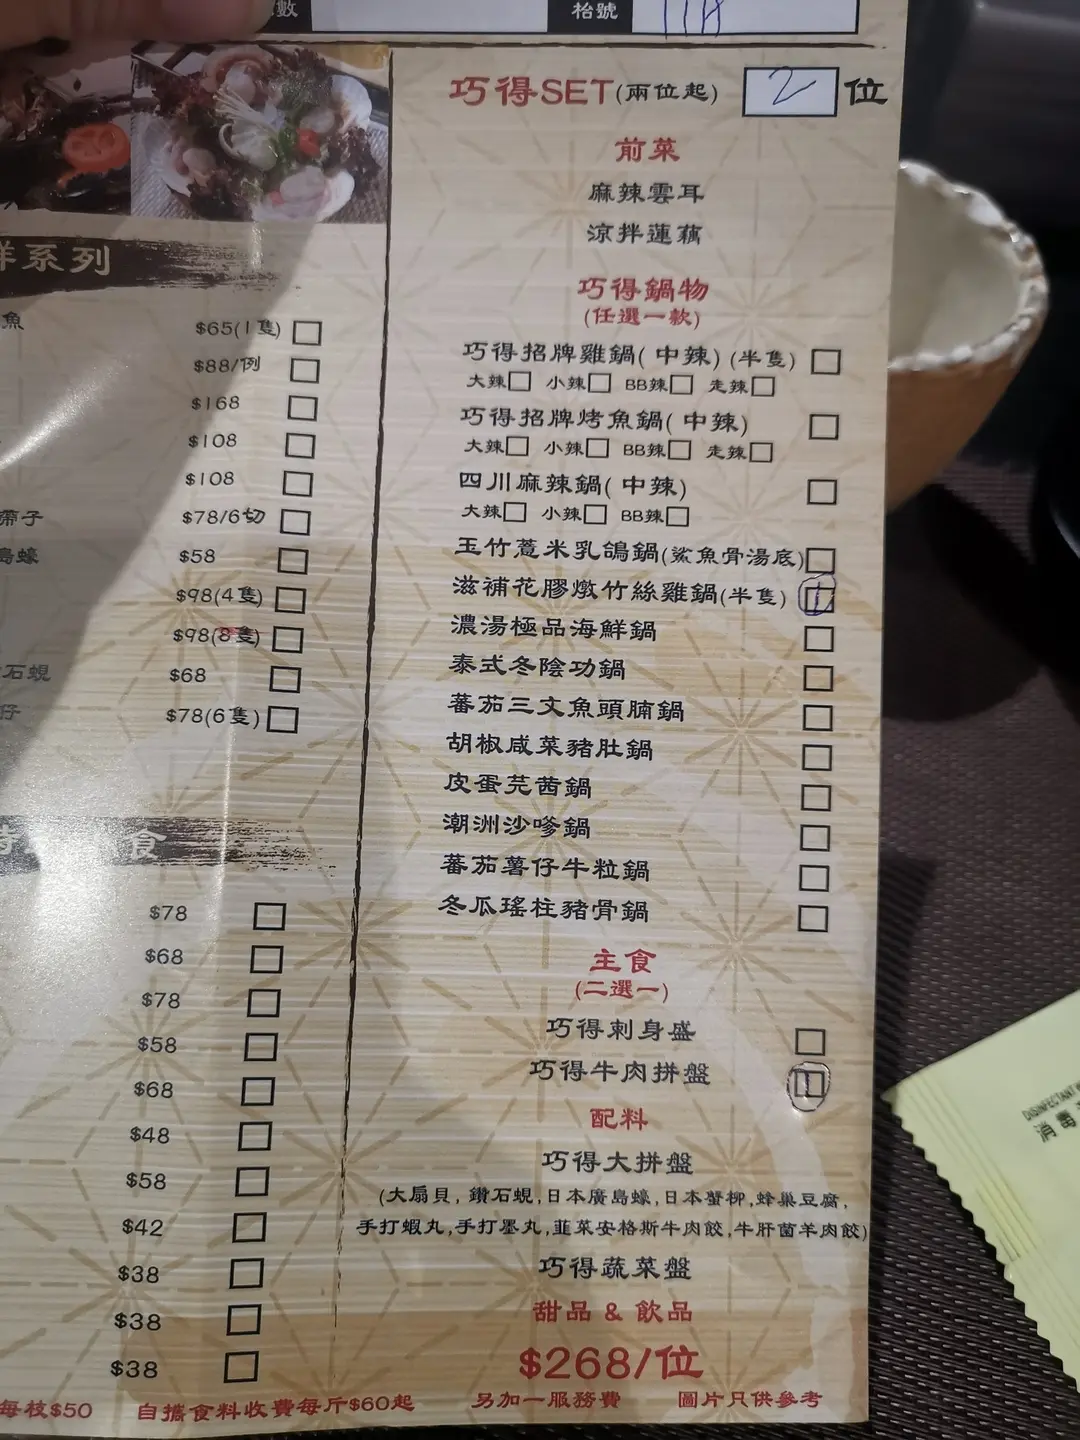 數
枱號 11A
巧得SET(兩位起) 2 位
前菜
麻辣雲耳
涼拌蓮藕
巧得鍋物
(任選一款)
巧得招牌雞鍋(中辣)(半隻)
大辣 小辣 BB辣 走辣
巧得招牌烤魚鍋(中辣)
大辣 小辣 BB辣 走辣
四川麻辣鍋(中辣)
大辣 小辣 BB辣
玉竹薏米乳鴿鍋(鯊魚骨湯底)
滋補花膠燉竹絲雞鍋(半隻) 1
濃湯極品海鮮鍋
泰式冬陰功鍋
蕃茄三文魚頭腩鍋
胡椒咸菜豬肚鍋
皮蛋芫茜鍋
潮洲沙嗲鍋
蕃茄薯仔牛粒鍋
冬瓜瑤柱豬骨鍋
主食
(二選一)
巧得刺身盛
巧得牛肉拼盤 1
配料
巧得大拼盤
(大扇貝,鑽石蜆,日本廣島蠔,日本蟹柳,蜂巢豆腐,
手打蝦丸,手打墨丸,韮菜安格斯牛肉餃,牛肝菌羊肉餃)
巧得蔬菜盤
甜品 & 飲品
$268/位
系列
魚 $65(1隻)
$88/例
$168
$108
$108
帶子 $78/6切
島蠔 $58
$98(4隻)
$98(8隻)
石蜆 $68
仔 $78(6隻)
食
$78
$68
$78
$58
$68
$48
$58
$42
$38
$38
$38
每枝$50 自攜食料收費每斤$60起 另加一服務費 圖片只供參考
DISINFECTANT
消毒